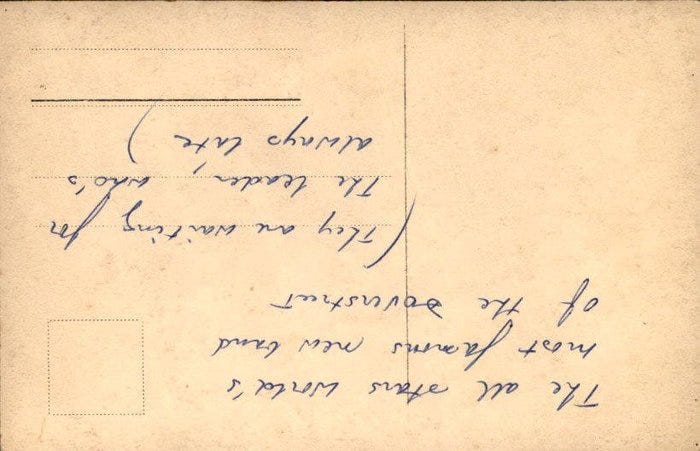 The all stars World's
most famous new band
of the Doverstreet
(They are waiting for
the leader, who's
always late)